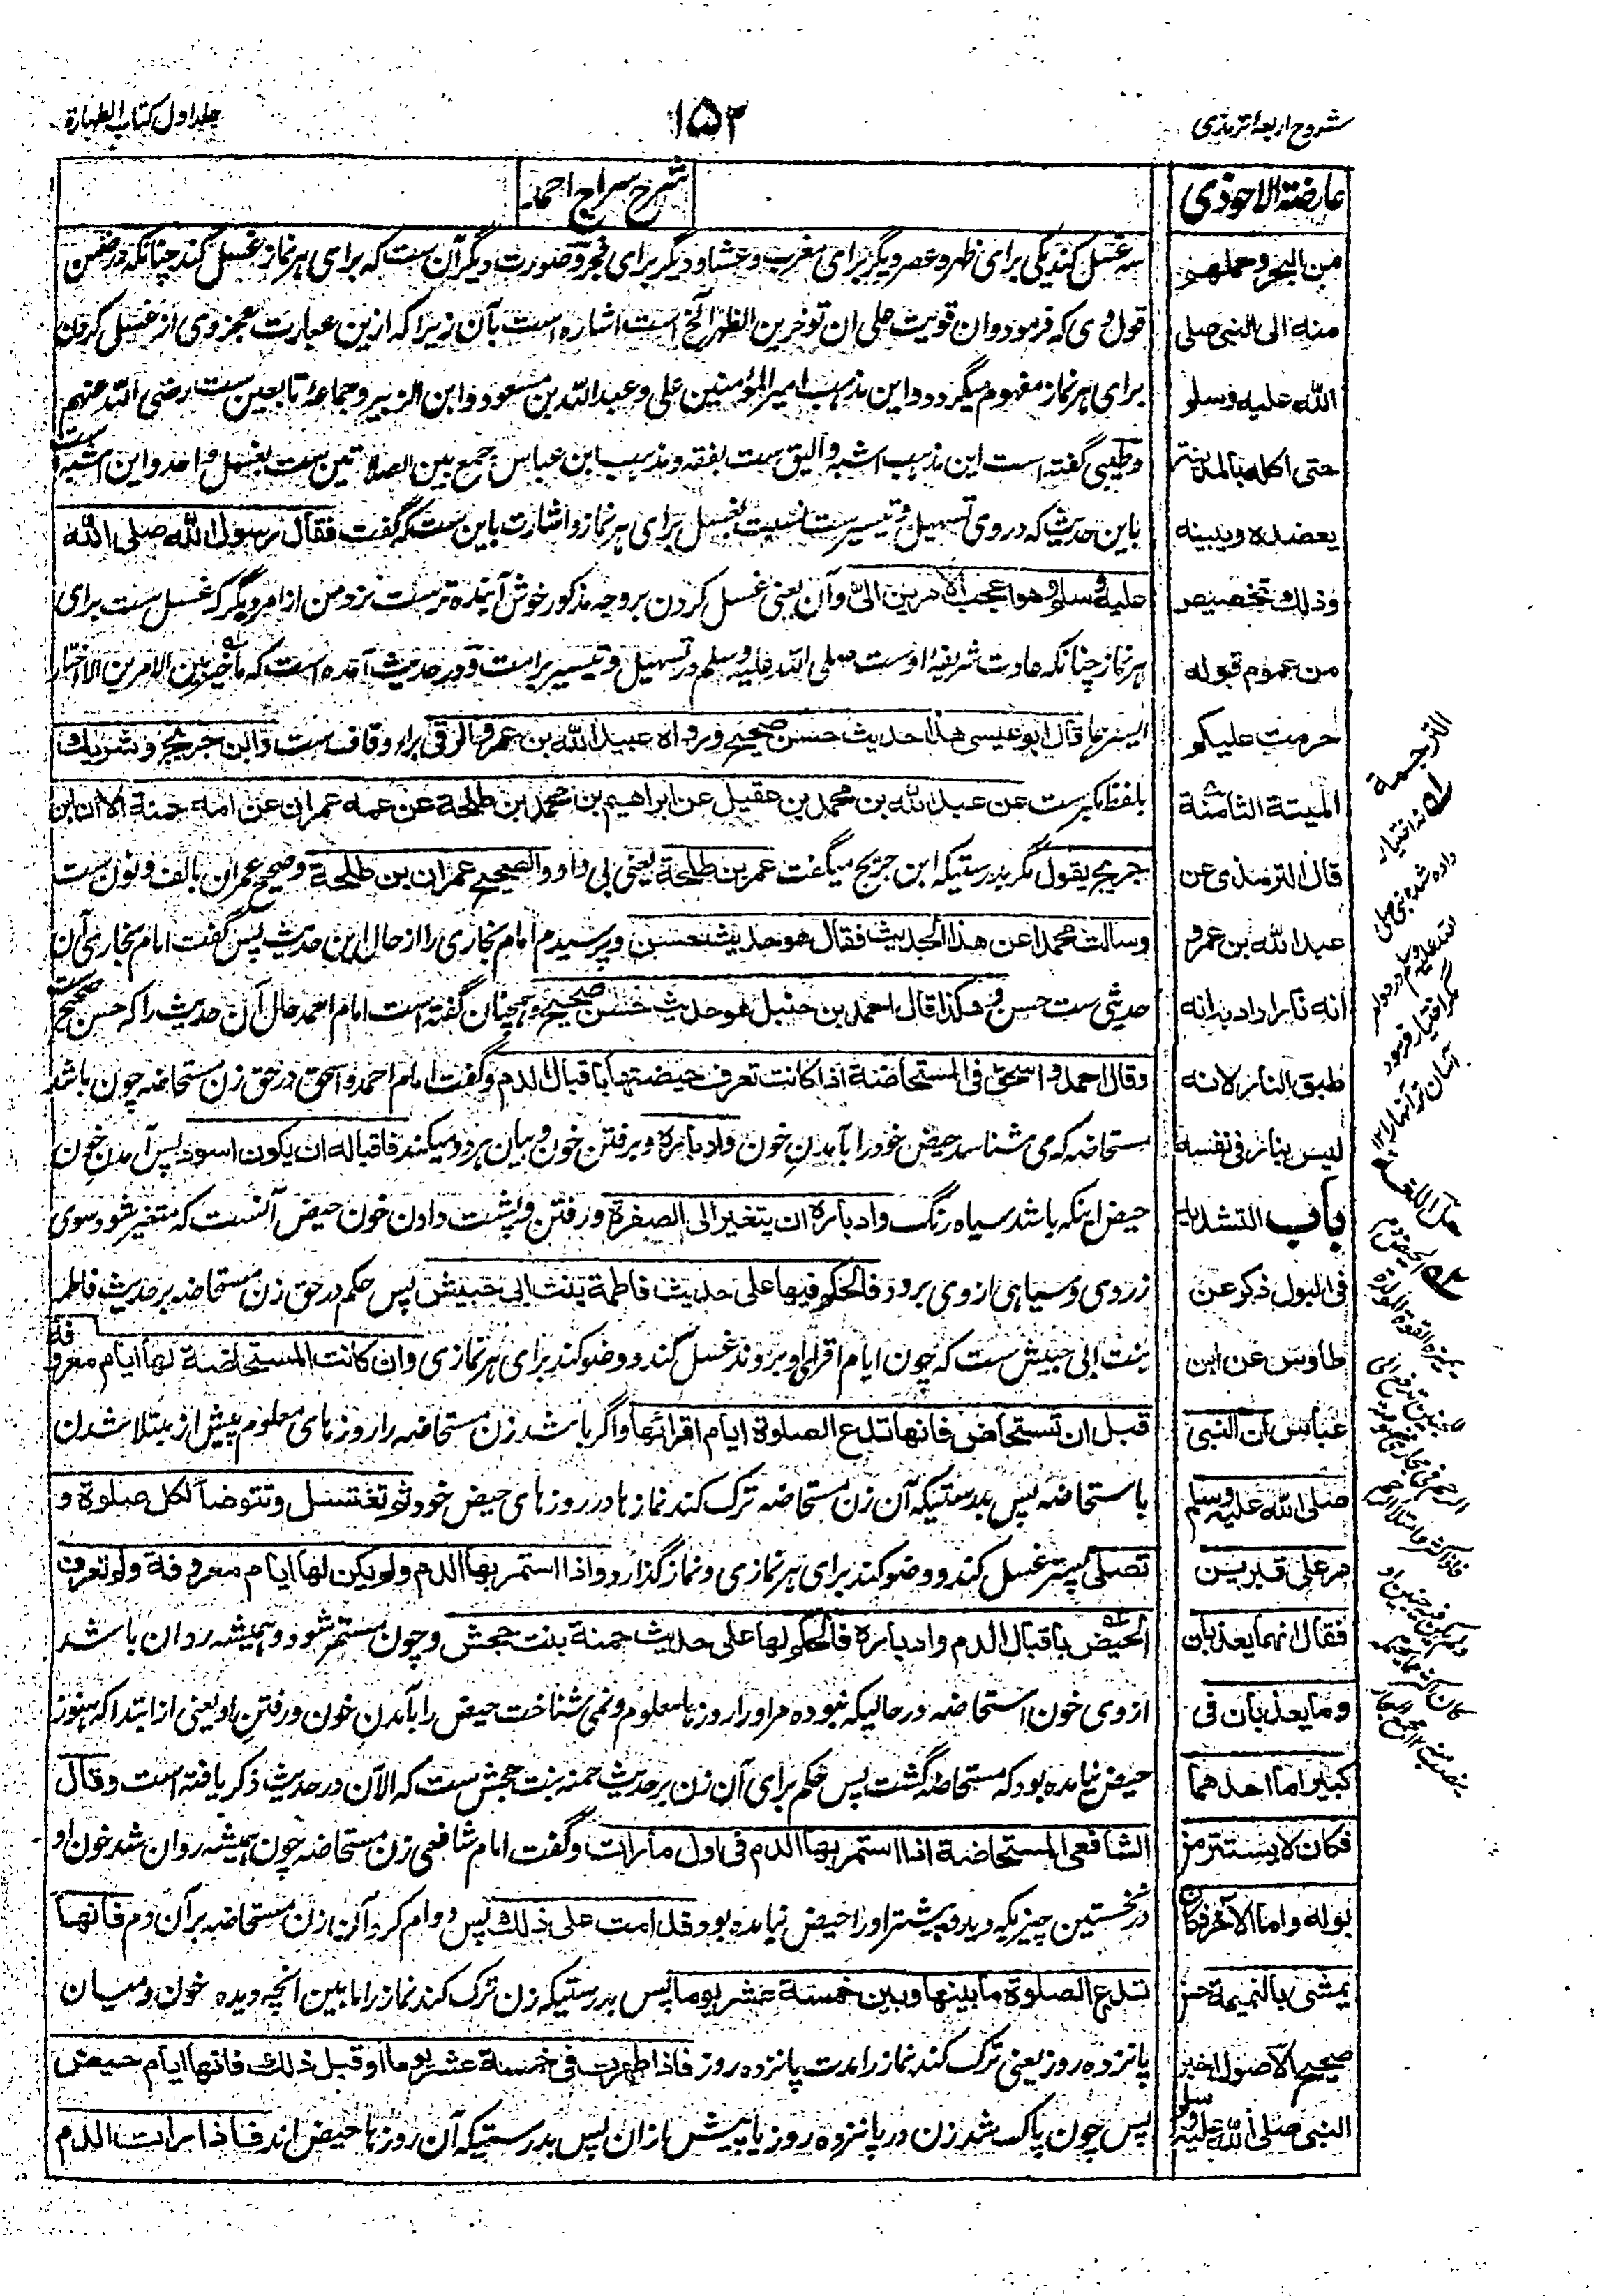 شروح اربعهٔ ترمذی
۱۵۲
جلد اول کتاب الطهارة
عارضة الاحوذی
من البحر وحملهو
منه الی النبی صلی
الله علیه وسلو
حتی اکله بالمدینة
یعضده ویبینه
وذلك تخصیص
من عموم قوله
حرمت علیکو
المیتة الثامنة
قال الترمذی عن
عبد الله بن عمرو
انه نار اراد به انه
طبق النار لانه
لیس بنار فی نفسه
باب التشدید
فی البول ذکر عن
طاوس عن ابن
عباس ان النبی
صلی الله علیه وسلم
مر علی قبرین
فقال انهما یعذبان
وما یعذبان فی
کبیر اما احدهما
فکان لا یستتر من
بوله واما الآخر فکان
یمشی بالنمیمة حسن
صحیح الاصول اخبر
النبی صلی الله علیه وسلو
شرح سراج احمد
سه غسل کند یکی برای ظهر و عصر و یگر برای مغرب و عشا و دیگر برای فجر و صورت دیگر آن ست که برای هر نماز غسل کند چنانکه در ضمن
قول وی که فرمود وان قویت علی ان توخرین الظهر الخ است اشاره است بآن زیرا که ازین عبارت عجز وی از غسل کردن
برای هر نماز مفهوم میگردد و این مذهب امیر المؤمنین علی و عبد الله بن مسعود و ابن الزبیر و جماعهٔ تابعین ست رضی الله عنهم
و طیبی گفته است این مذهب اشبه و الیق ست بفقه و مذهب ابن عباس جمع بین الصلاتین ست بغسل واحد و این اشبه ست
باین حدیث که در وی تسهیل و تیسیر ست نسبت بغسل برای هر نماز و اشارت باین ست که گفت فقال رسول الله صلی الله
علیه وسلو وهو اعجب الامرین الیّ و آن یعنی غسل کردن بر وجه مذکور خوش آینده تر ست نزد من از امر دیگر که غسل ست برای
هر نماز چنانکه عادت شریفهٔ اوست صلی الله علیه وسلم در تسهیل و تیسیر بر امت و در حدیث آمده است که ما خیر بین الامرین الا اختار
ایسرهما قال ابو عیسی هذا حدیث حسن صحیح ورواه عبید الله بن عمرو الرقی براء و قاف ست وابن جریج وشریك
بلفظ مکبرست عن عبد الله بن محمد بن عقیل عن ابراهیم بن محمد بن طلحة عن عمه عمران عن امه حمنة الا ان ابن
جریج یقول مگر بدرستیکه ابن جریج میگفت عمر بن طلحة یعنی بی واو والصحیح عمران بن طلحة و صحیح عمران بالف و نون ست
وسالت محمدا عن هذا الحدیث فقال هو حدیث حسن و پرسیدم امام بخاری را از حال این حدیث پس گفت امام بخاری آن
حدیثی ست حسن وهکذا قال احمد بن حنبل هو حدیث حسن صحیح و همچنان گفته است امام احمد حال آن حدیث را که حسن صحیح ست
وقال احمد واسحق فی المستحاضة اذا کانت تعرف حیضتها باقبال الدم و گفت امام احمد و اسحق در حق زن مستحاضه چون باشد
مستحاضه که می شناسد حیض خود را بآمدن خون وادباره و برفتن خون و بیان هر دو میکند فاقباله ان یکون اسود پس آمدن خون
حیض اینکه باشد سیاه رنگ وادباره ان یتغیر الی الصفرة و رفتن و پشت دادن خون حیض آنست که متغیر شود سوی
زردی و سیاهی از وی برود فالحکم فیها علی حدیث فاطمة بنت ابی حبیش پس حکم در حق زن مستحاضه بر حدیث فاطمه
بنت ابی حبیش ست که چون ایام اقرای او بروند غسل کند و وضو کند برای هر نمازی وان کانت المستحاضة لها ایام معروفة
قبل ان تستحاض فانها تدع الصلوة ایام اقرائها و اگر باشد زن مستحاضه را روزهای معلوم پیش از مبتلا شدن
باستحاضه پس بدرستیکه آن زن مستحاضه ترک کند نمازها در روزهای حیض خود ثو تغتسل وتتوضأ لکل صلوة و
تصلی پستر غسل کند و وضو کند برای هر نمازی و نماز گذارد واذا استمر بها الدم ولویکن لها ایام معروفة ولو تعرف
الحیض باقبال الدم وادباره فالحکم لها علی حدیث حمنة بنت جحش و چون مستمر شود و همیشه روان باشد
از وی خون استحاضه در حالیکه نبوده مر اورا روزها معلوم و نمی شناخت حیض را بآمدن خون و رفتن او یعنی از ابتدا که هنوز
حیض نیامده بود که مستحاضه گشت پس حکم برای آن زن بر حدیث حمنه بنت جحش ست که الآن در حدیث ذکر یافته است وقال
الشافعی المستحاضة اذا استمر بها الدم فی اول ما رات و گفت امام شافعی زن مستحاضه چون همیشه روان شد خون او
در نخستین چیزیکه دید و پیشتر اورا حیض نیامده بود فدامت علی ذلك پس دوام کرد آن زن مستحاضه بر آن دم فانها
تدع الصلوة ما بینها وبین خمسة عشر یوما پس بدرستیکه زن ترک کند نماز را ما بین انچه دیده خون و میان
پانزده روز یعنی ترک کند نماز را مدت پانزده روز فاذا طهرت فی خمسة عشر یوما او قبل ذلك فانها ایام حیض
پس چون پاک شد زن در پانزده روز یا پیش ازان پس بدرستیکه آن روزها حیض اند فاذا رات الدم
الترجمة
نه اختیار
داده شد نبی صلی
الله علیه وسلم در دو امر
مگر اختیار فرمود
آسان تر آنها را ۱۲